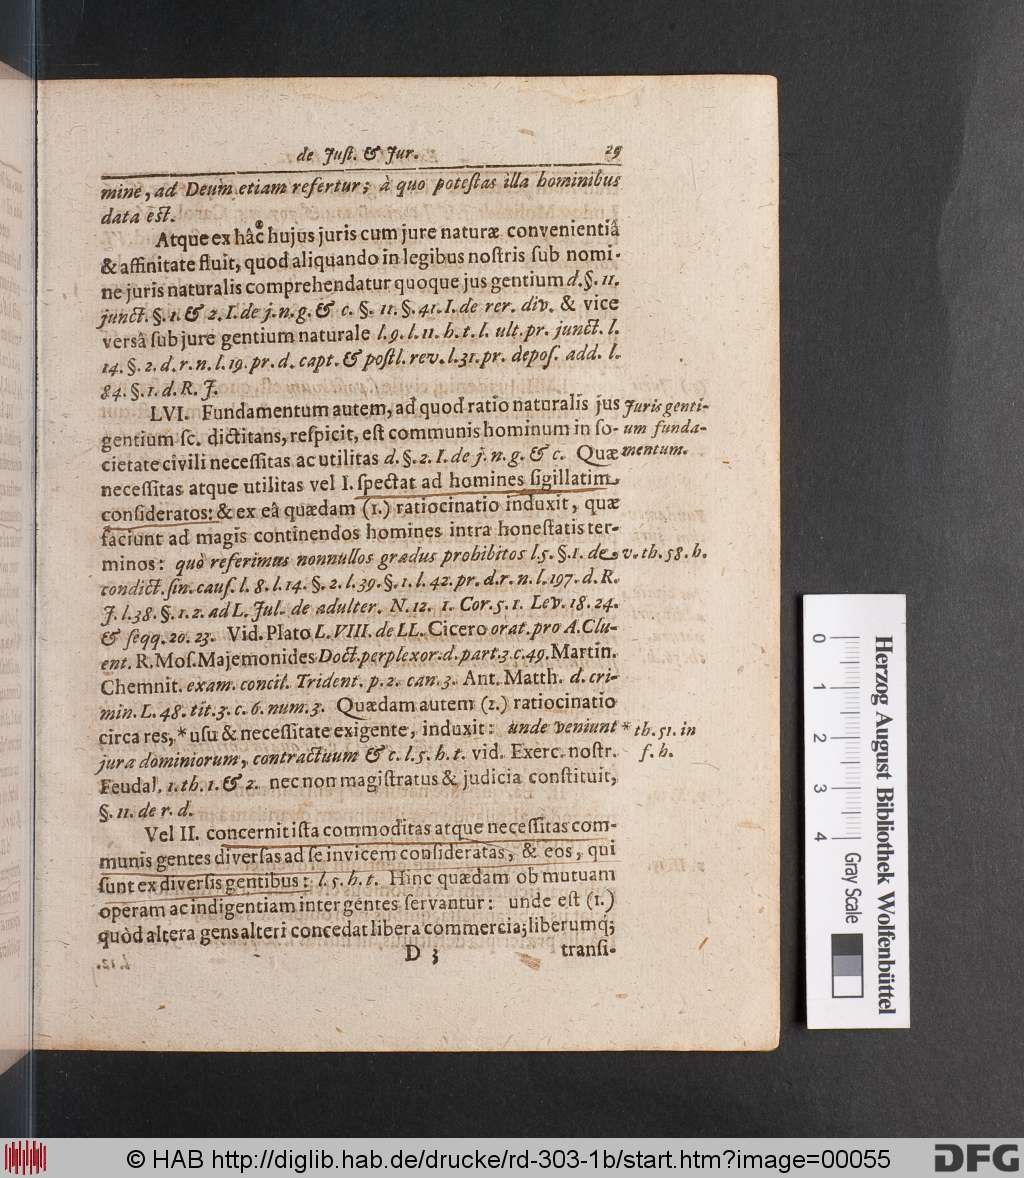 de Juſt. & Jur. 29
mine, ad Deum etiam refertur; à quo poteſtas illa hominibus
data eſt.
Atque ex hâc hujus juris cum jure naturæ convenientiâ
& affinitate fluit, quod aliquando in legibus noſtris ſub nomi-
ne juris naturalis comprehendatur quoque jus gentium d. §. 11.
junct. §. 1. & 2. I. de j. n. g. & c. §. 11. §. 41. I. de rer. div. & vice
versâ ſub jure gentium naturale l. 9. l. 11. h. t. l. ult. pr. junct. l.
14. §. 2. d. r. n. l. 19. pr. d. capt. & poſtl. rev. l. 31. pr. depoſ. add. l.
84. §. 1. d. R. J.
LVI. Fundamentum autem, ad quod ratio naturalis jus
gentium ſc. dictitans, reſpicit, eſt communis hominum in ſo-
cietate civili neceſſitas ac utilitas d. §. 2. I. de j. n. g. & c. Quæ
Juris genti-
um funda-
mentum.
neceſſitas atque utilitas vel I. ſpectat ad homines ſigillatim
conſideratos: & ex eâ quædam (1.) ratiocinatio induxit, quæ
faciunt ad magis continendos homines intra honeſtatis ter-
minos: quò referimus nonnullos gradus prohibitos l. 5. §. 1. de
v. th. 58. h.
condict. ſin. cauſ. l. 8. l. 14. §. 2. l. 39. §. 1. l. 42. pr. d. r. n. l. 197. d. R.
J. l. 38. §. 1. 2. ad L. Jul. de adulter. N. 12. 1. Cor. 5. 1. Lev. 18. 24.
& ſeqq. 20. 23. Vid. Plato L. VIII. de LL. Cicero orat. pro A. Clu-
ent. R. Moſ. Majemonides Doct. perplexor. d. part. 3. c. 49. Martin.
Chemnit. exam. concil. Trident. p. 2. can. 3. Ant. Matth. d. cri-
min. L. 48. tit. 3. c. 6. num. 3. Quædam autem (2.) ratiocinatio
circa res, * uſu & neceſſitate exigente, induxit: unde veniunt
* th. 51. in
f. h.
jura dominiorum, contractuum & c. l. 5. h. t. vid. Exerc. noſtr.
Feudal. 1. th. 1. & 2. nec non magiſtratus & judicia conſtituit,
§. 11. de r. d.
Vel II. concernit iſta commoditas atque neceſſitas com-
munis gentes diverſas ad ſe invicem conſideratas, & eos, qui
ſunt ex diverſis gentibus: l. 5. h. t. Hinc quædam ob mutuam
operam ac indigentiam inter gentes ſervantur: unde eſt (1.)
quòd altera gens alteri concedat libera commercia; liberumq́;
D 3 tranſi-
0 1 2 3 4
Gray Scale
Herzog August Bibliothek Wolfenbüttel
© HAB http://diglib.hab.de/drucke/rd-303-1b/start.htm?image=00055
DFG